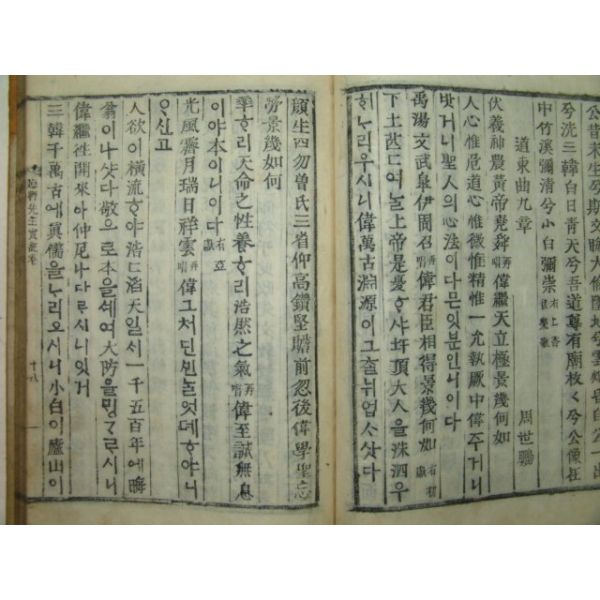 公昔未生兮斯文晦大倫隳 皆自公一出
兮洗三韓白日青天兮吾道尊有廟枚〻兮公像在
中竹溪彌清兮小白彌崇 右上香
道東曲九章 周世鵬
伏羲神農黃帝堯舜 再唱 偉繼天立極景幾何如
人心惟危道心惟微惟精惟一允執厥中偉주거니
밧거니聖人의心法이다믄잇분인니이다
禹湯文武皐伊周召 再唱 偉君臣相得景幾何如 右初獻
下土茫다여늘上帝是憂ᄒᆞ샤圩頂大人을洙泗우
희ᄂᆞ리우시니偉萬古淵源이그츨뉘업ᄉᆞ샷다
顔生四勿曾氏三省仰高鑽堅瞻前忽後偉學聖忘
勞景幾如何
率ᄒᆞ리天命之性養ᄒᆞ리浩然之氣 再唱 偉至誠無息
이야本이니이다 右亞獻
光風霽月瑞日祥雲 再唱 偉그처딘ᄂᆞᆯ엇뎨ᄒᆞ야니
ᄋᆞ신고
人欲이橫流ᄒᆞ야浩〻滔天일ᄉᆡ一千五百年에晦
翁이나샷다敬으로本을셰여大防을ᄆᆡᆼᄀᆞᄅᆞ시니
偉繼往開來아仲尼나다ᄅᆞ시니잇거
三韓千萬古에眞儒을ᄂᆞ리오시니小白이廬山이
晦軒先生實記卷 十八